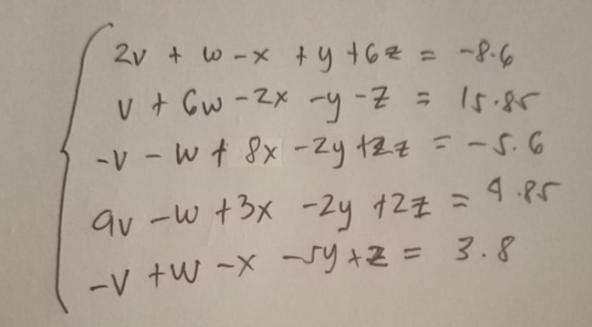 2v + w - x + y + 6z = -8.6
v + 6w - 2x - y - z = 15.85
-v - w + 8x - 2y + 2z = -5.6
9v - w + 3x - 2y + 2z = 4.85
-v + w - x - 5y + z = 3.8